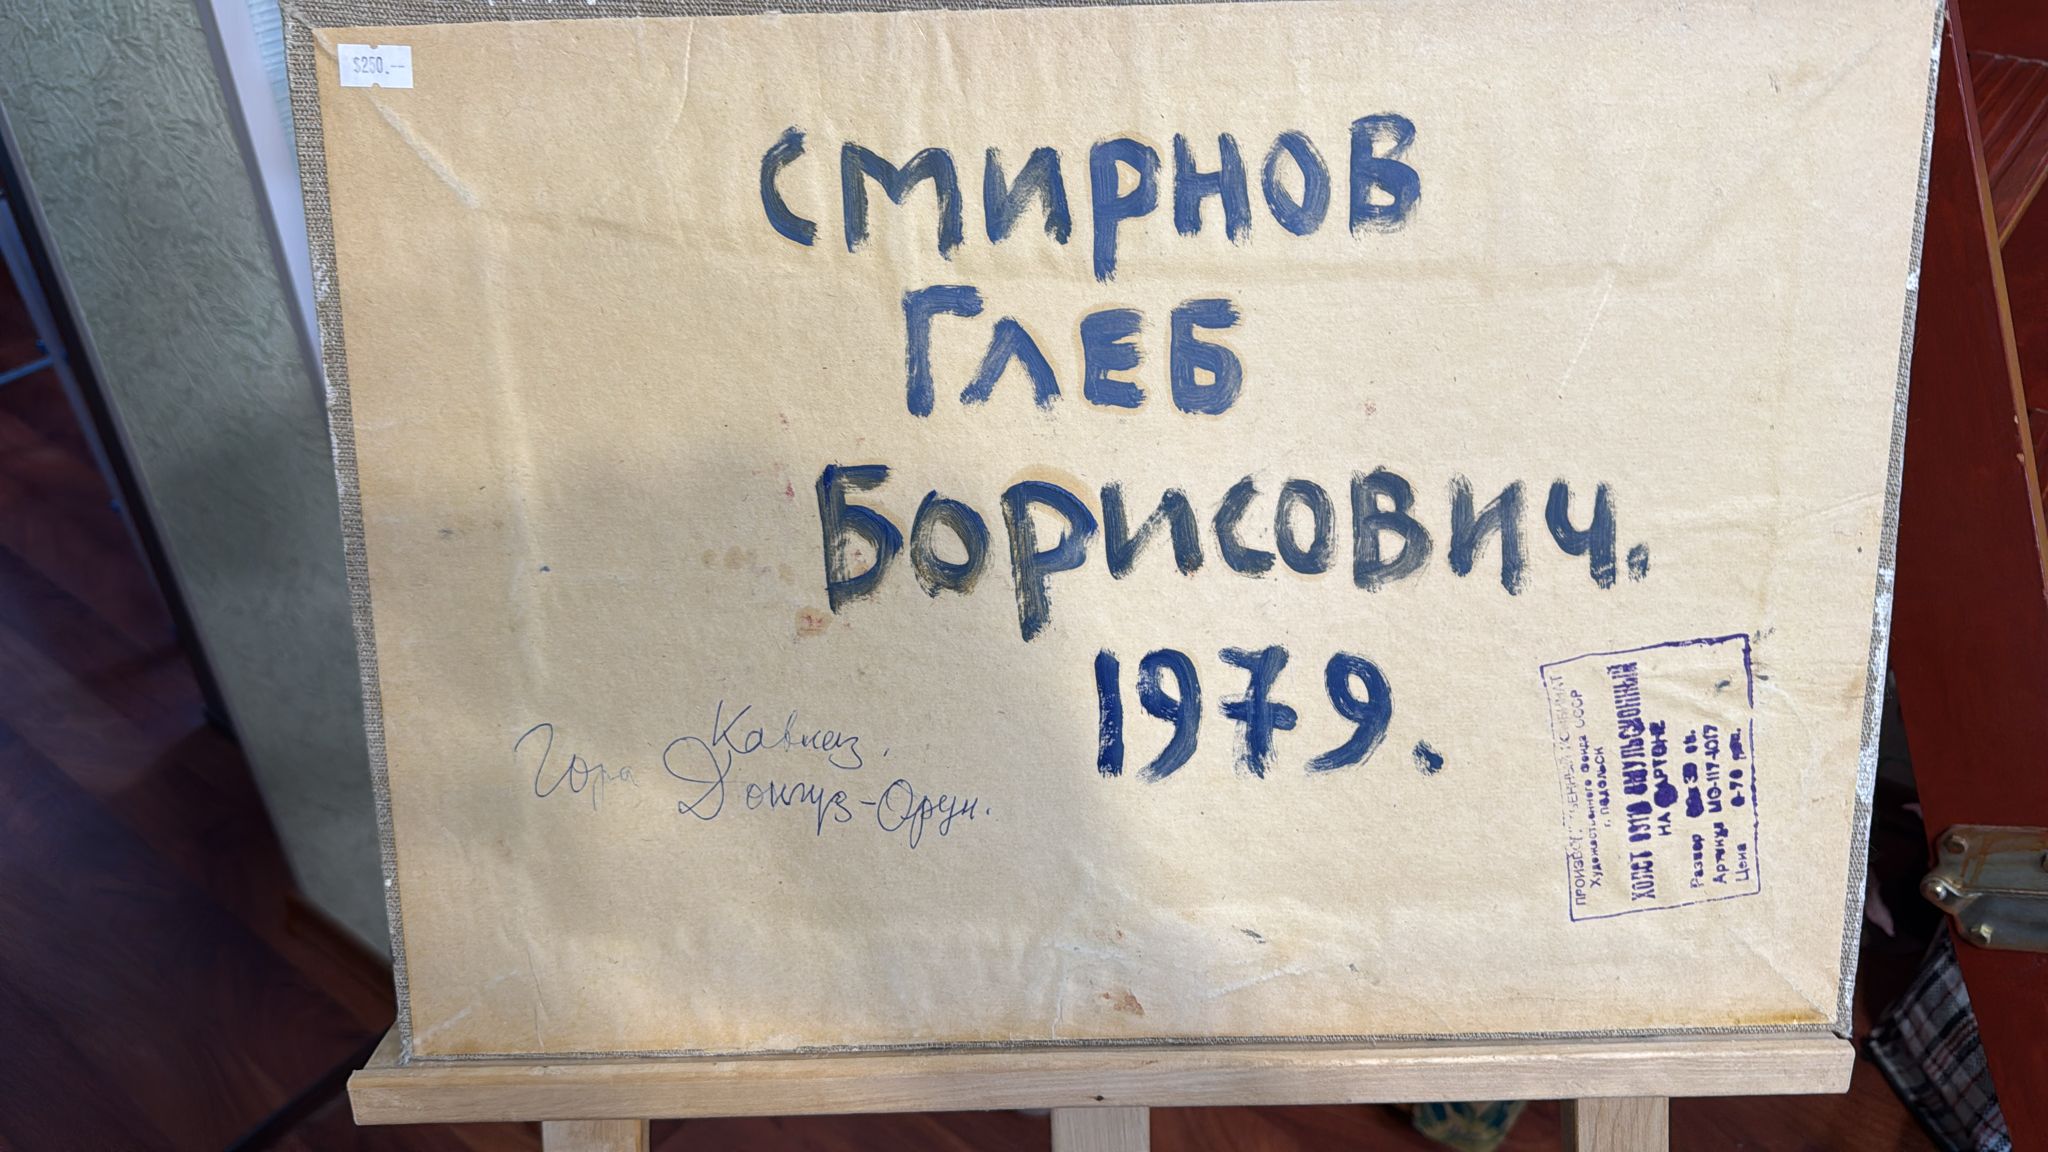 $250.--
СМИРНОВ
ГЛЕБ
БОРИСОВИЧ.
1979.
Кавказ.
Гора Донгуз-Орун.
ПРОИЗВОДСТВЕННЫЙ КОМБИНАТ
Художественного фонда СССР
г. Подольск
ХОЛСТ ЭМУЛЬСИОННЫЙ
НА КАРТОНЕ
Размер см.
Артикул МО-117-4017
Цена 0-70